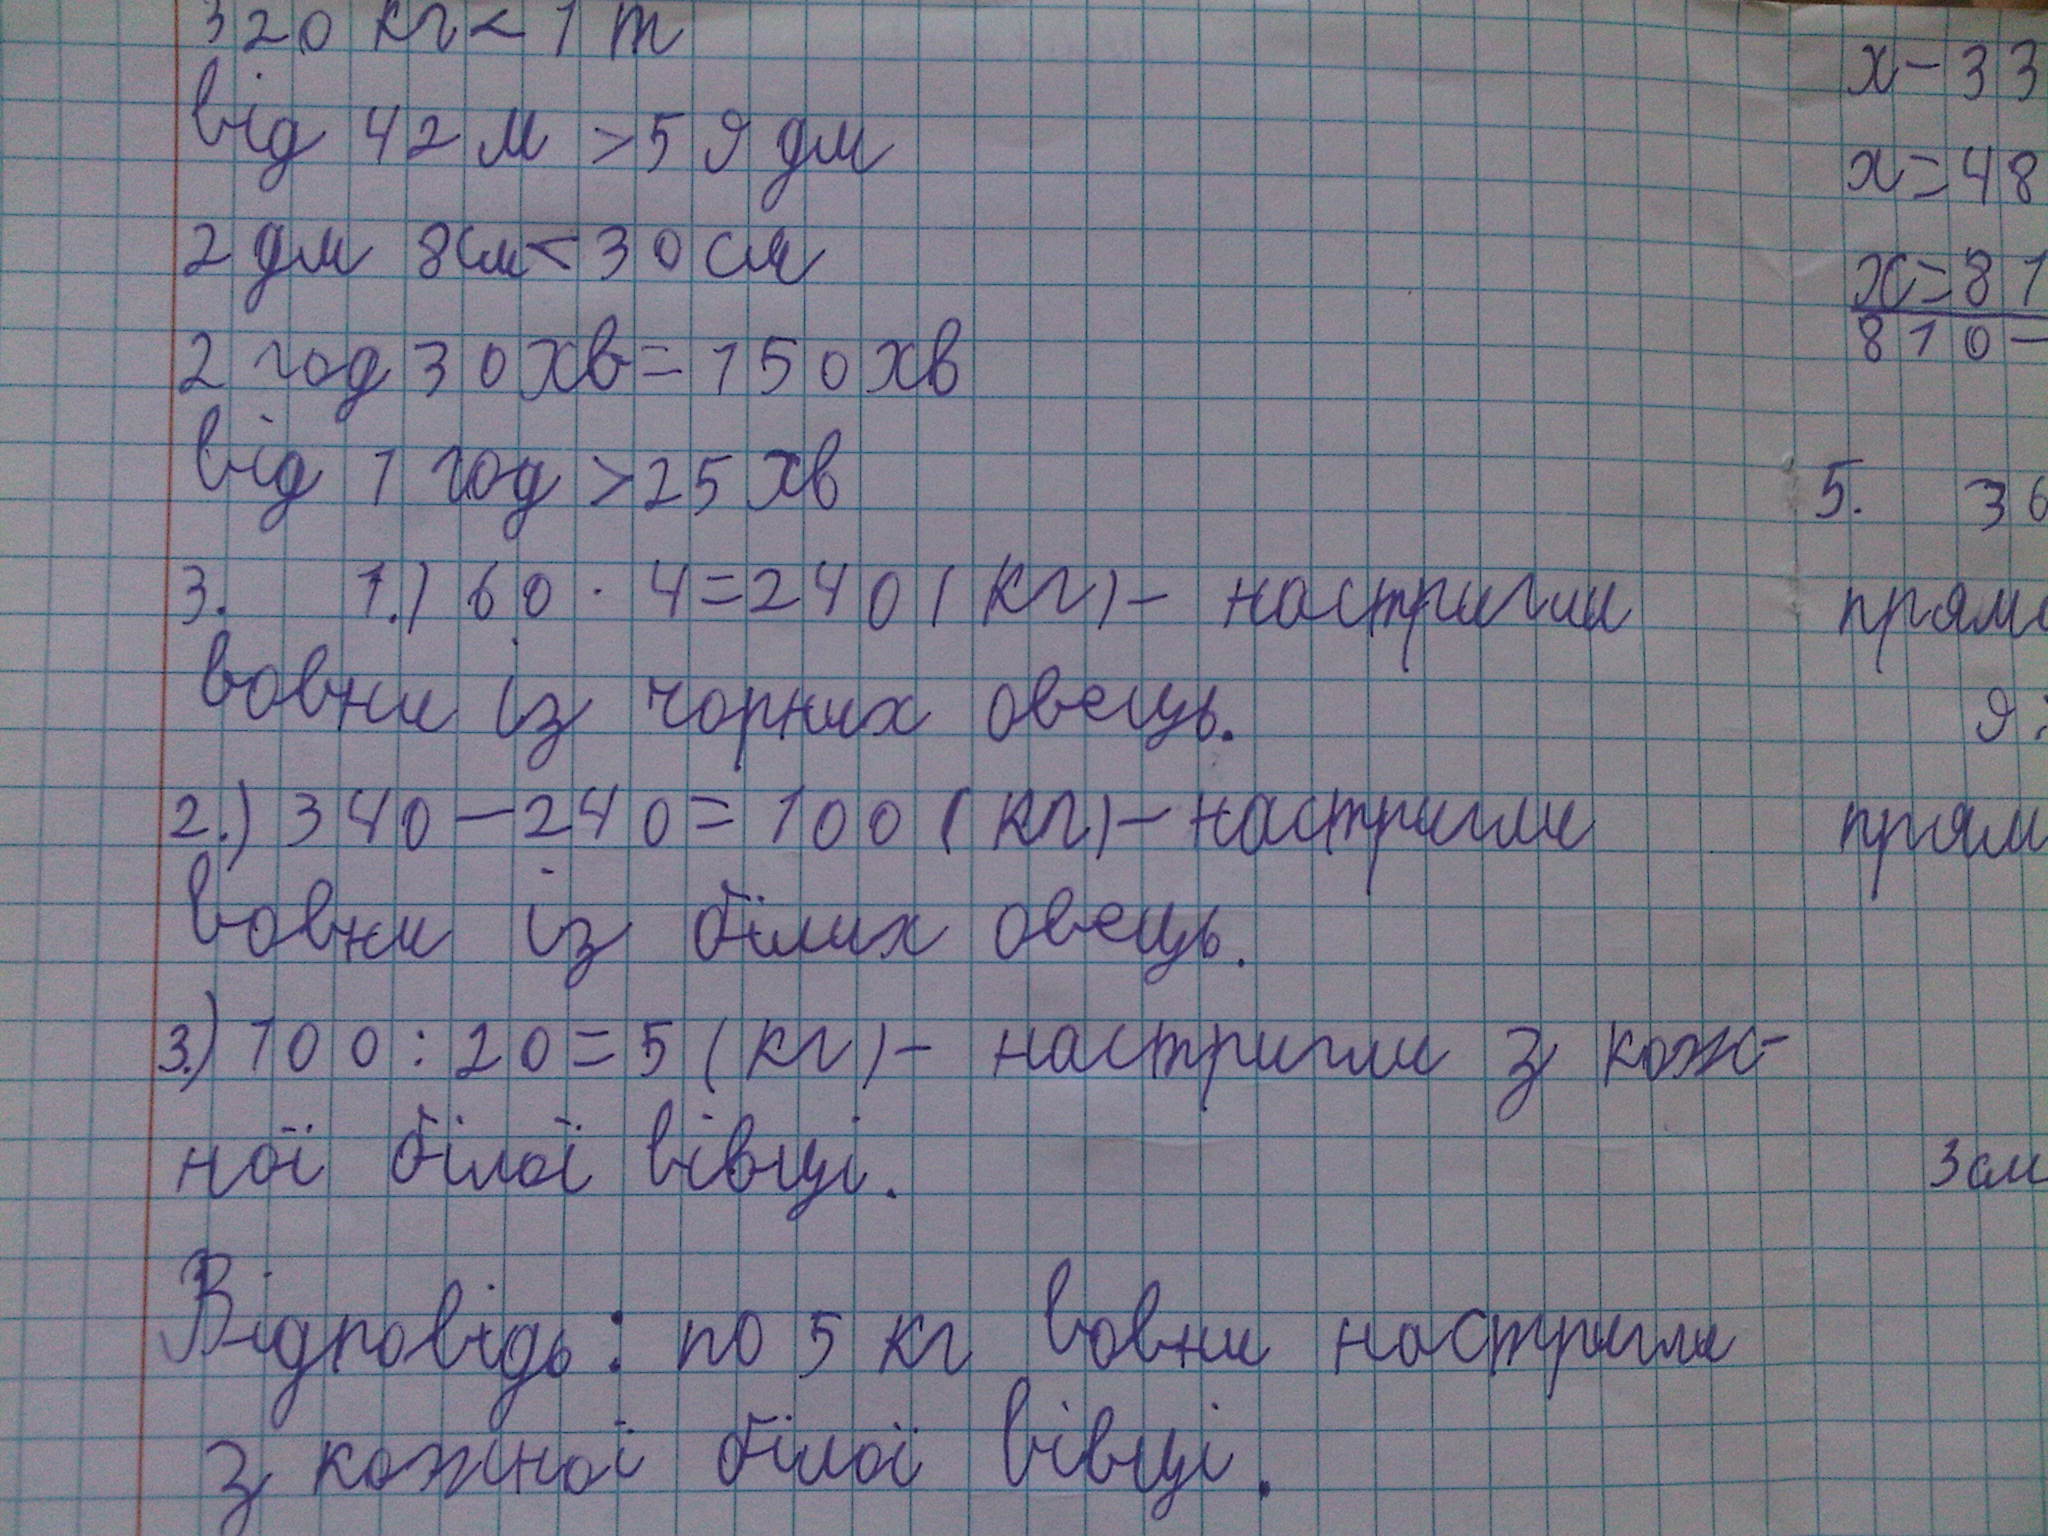 320 кг < 1 т
від 42 м > 59 дм
2 дм 8см < 30 см
2 год 30 хв = 150 хв
від 1 год > 25 хв
3. 1.) 60 · 4 = 240 (кг) - настригли
вовни із чорних овець.
2.) 340 - 240 = 100 (кг) - настригли
вовни із білих овець.
3.) 100 : 20 = 5 (кг) - настригли з кож-
ної білої вівці.
Відповідь: по 5 кг вовни настригли
з кожної білої вівці.
х - 33
х = 48
х = 81
810 -
5. 36
прямо
9 :
прям
3 см